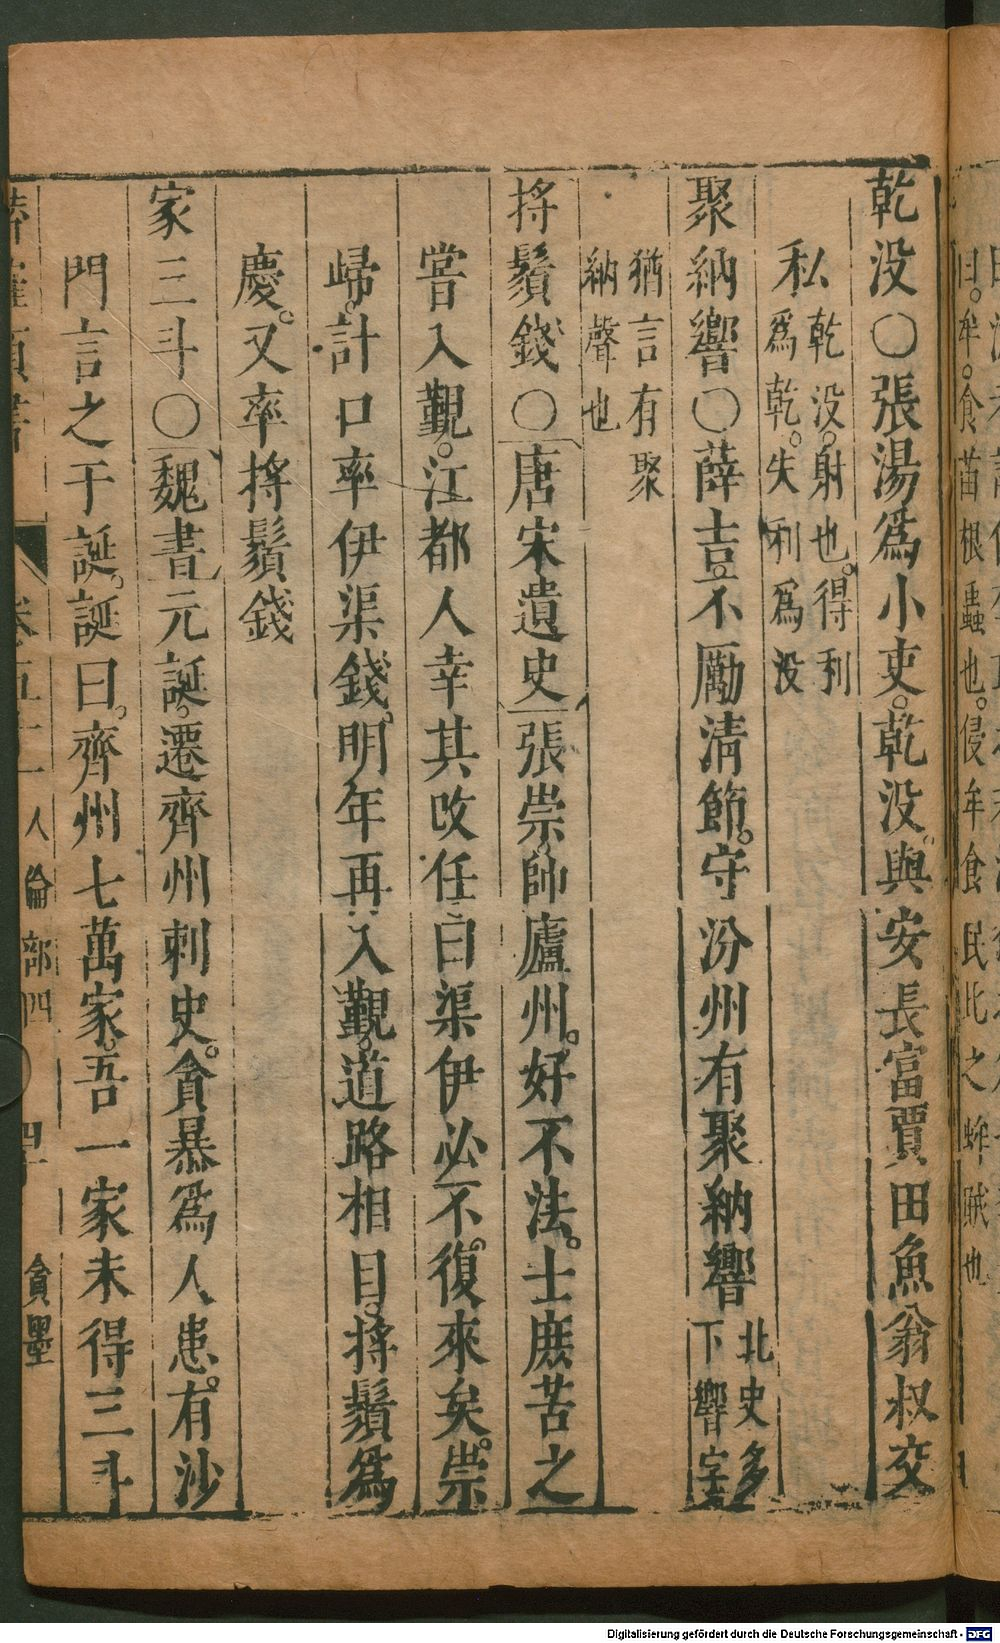 曰。牟。食苗根蟲也。侵牟食民比之蛑賊也
乾没〇張湯爲小吏。乾没。與安長富賈田魚翁叔交
私乾没。射也。得利
爲乾。失利爲没
聚納響〇薛吉不勵清節。守汾州有聚納響北史多
下響字
猶言有聚
納聲也
捋鬚錢〇唐宋遺史張崇。帥廬州。好不法。士庶苦之
嘗入覲。江都人幸其改任曰渠伊必不復來矣。崇
歸。計口率伊渠錢。明年再入覲。道路相目。捋鬚爲
慶。又率捋鬚錢
家三斗〇魏書元誕。遷齊州刺史。貪暴爲人患。有沙
門言之于誕。誕曰。齊州七萬家。吾一家未得三斗
人倫部四
貪墨
Digitalisierung gefördert durch die Deutsche Forschungsgemeinschaft - DFG